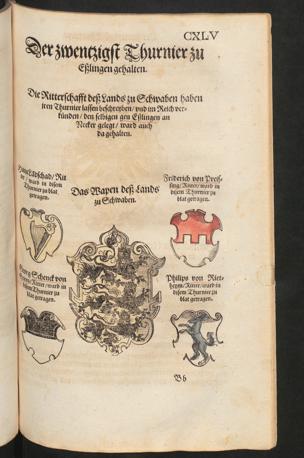 CXLV
Der zwentzigst Thurnier zu
Eßlingen gehalten.
Die Ritterschafft deß Lands zu Schwaben haben
iren Thurnier lassen beschreyben / vnd im Reich ver-
künden / den selbigen gen Eßlingen an
Necker gelegt / ward auch
da gehalten.
Landschad / Rit
ter / ward in disem
Thurnier zu blat
getragen.
Das Wapen deß Lands
zu Schwaben.
Friderich von Preys-
sing / Ritter / ward in
disem Thurnier zu
blat getragen.
Georg Schenck von
Ritter / ward in
disem Thurnier zu
blat getragen.
Philips von Riet-
heym / Ritter / ward in
disem Thurnier zu
blat getragen.
Bb